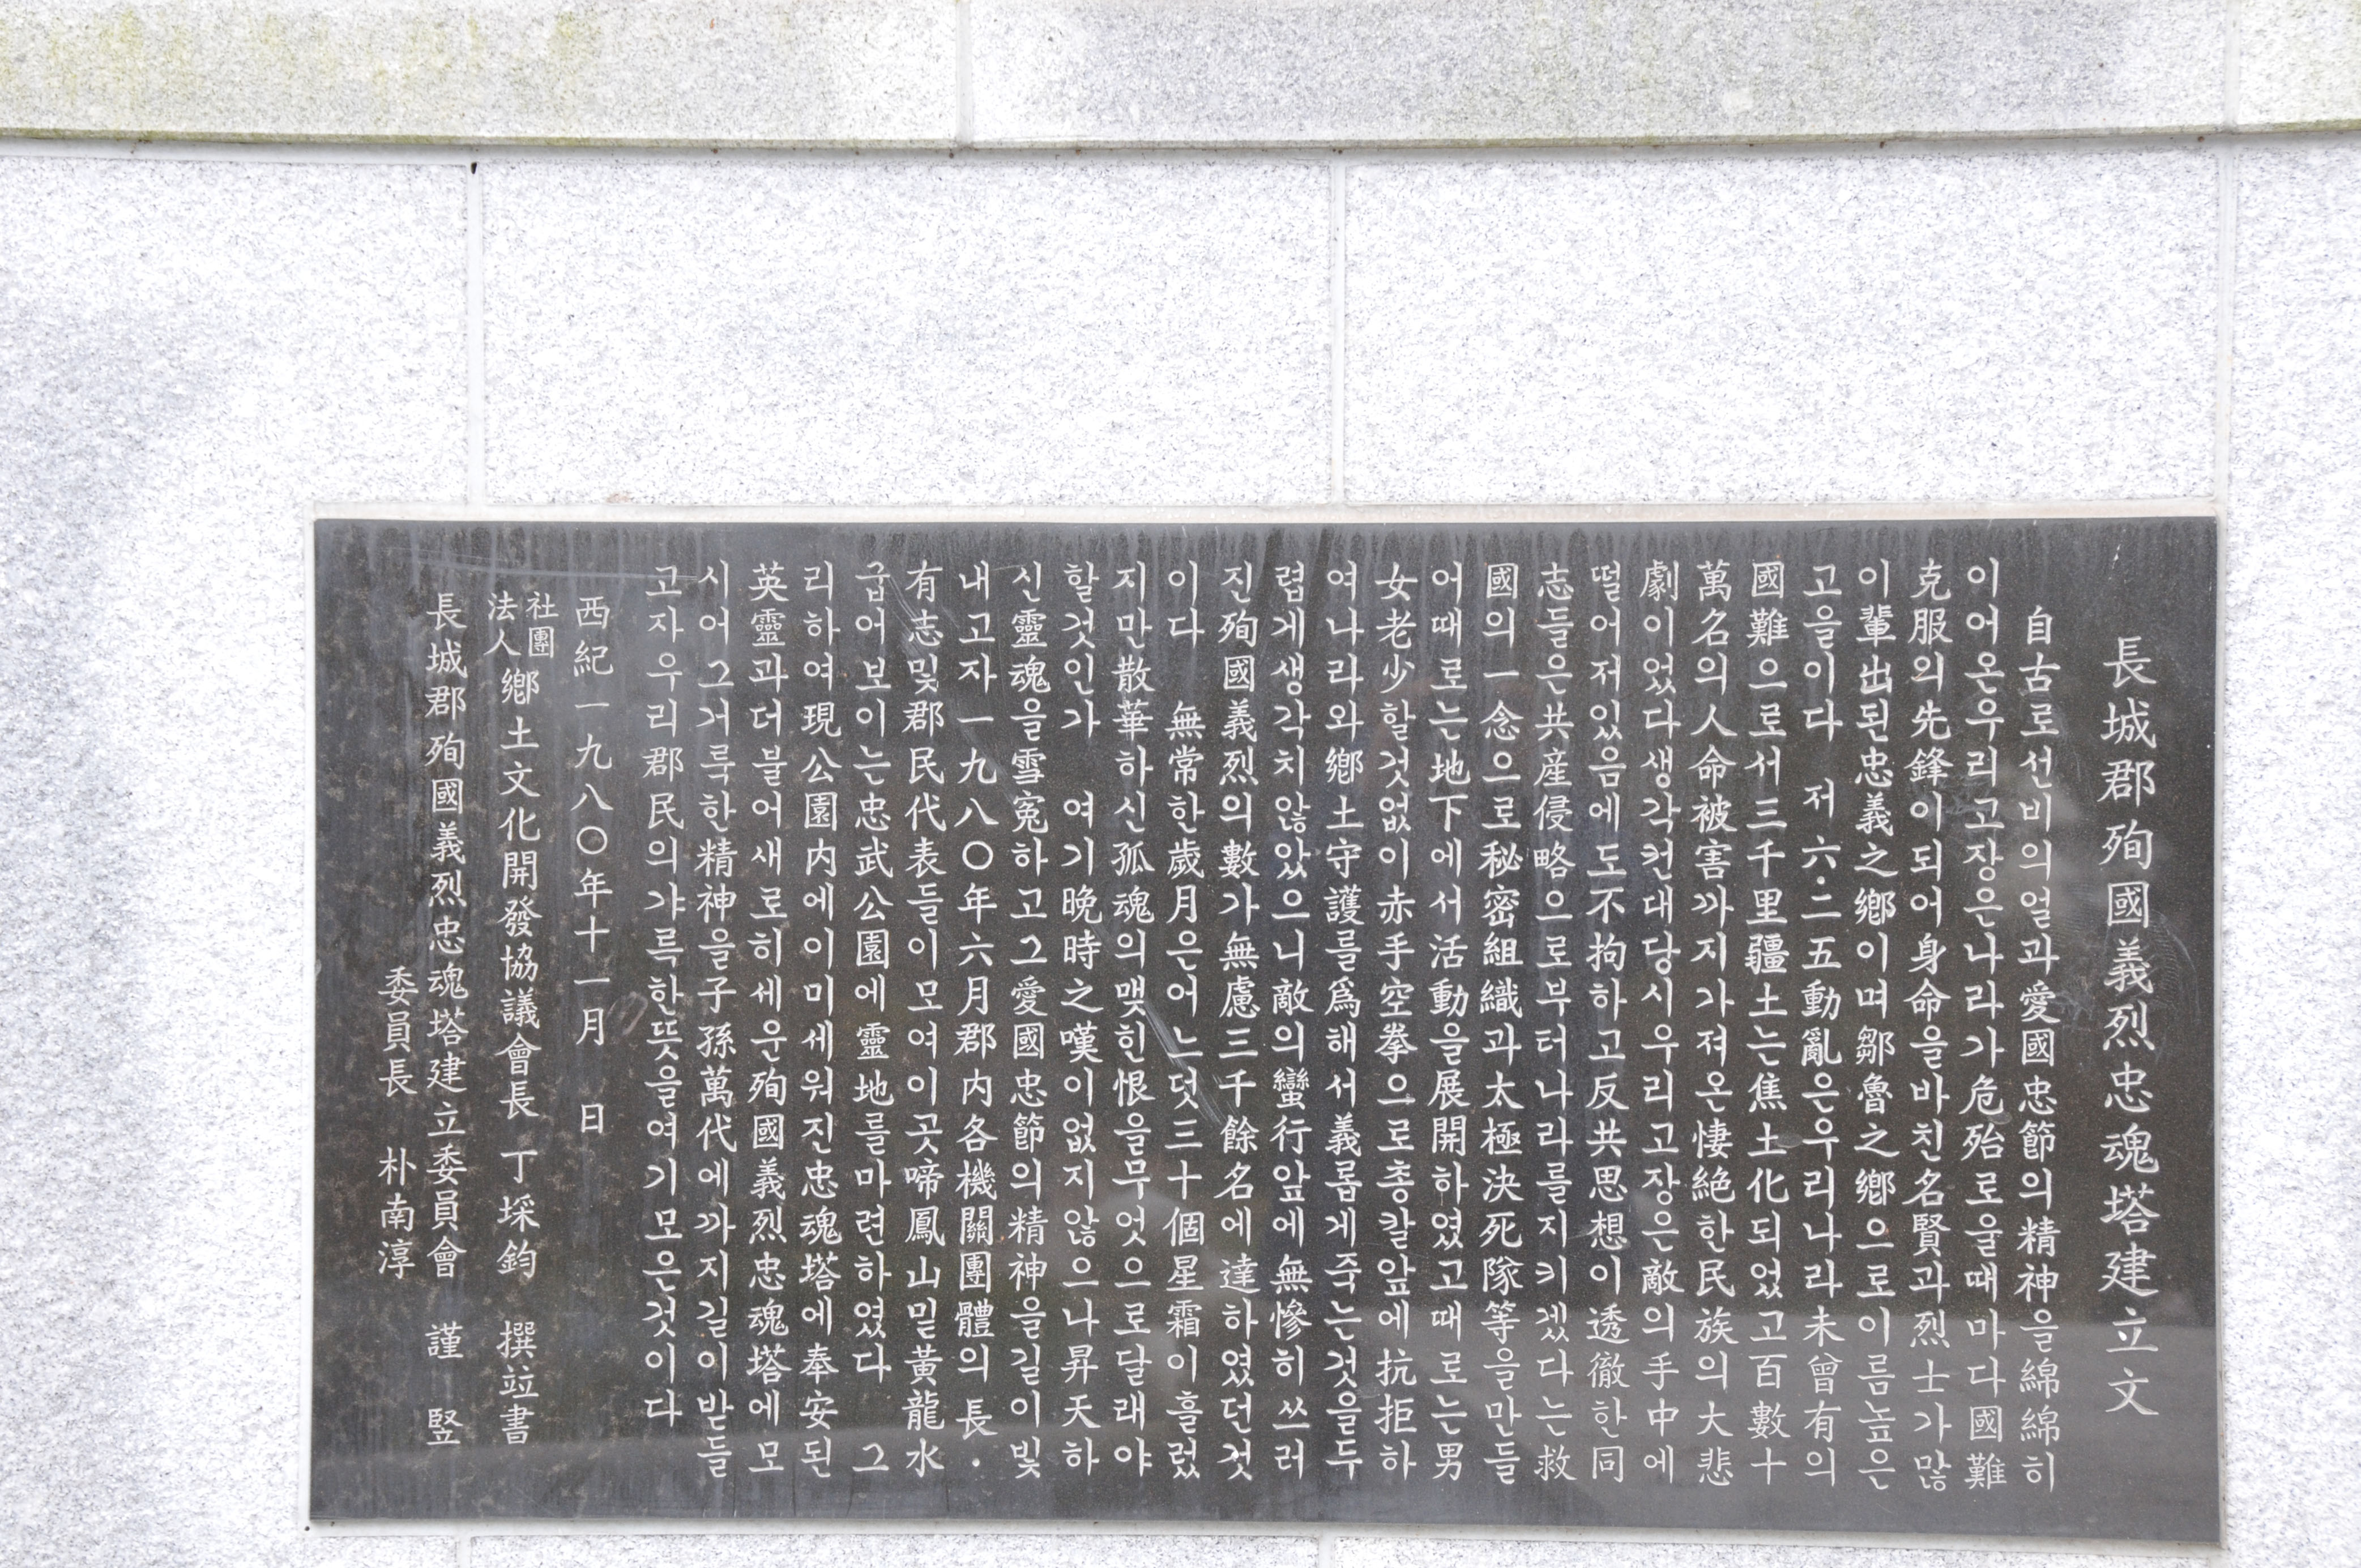 長城郡殉國義烈忠魂塔建立文
自古로선비의얼과愛國忠節의精神을綿綿히
이어온우리고장은나라가危殆로울때마다國難
克服의先鋒이되어身命을바친名賢과烈士가많
이輩出된忠義之鄕이며鄒魯之鄕으로이름높은
고을이다 저六·二五動亂은우리나라未曾有의
國難으로서三千里疆土는焦土化되었고百數十
萬名의人命被害까지가져온悽絶한民族의大悲
劇이었다생각컨대당시우리고장은敵의手中에
떨어저있음에도不拘하고反共思想이透徹한同
志들은共産侵略으로부터나라를지키겠다는救
國의一念으로秘密組織과太極決死隊等을만들
어때로는地下에서活動을展開하였고때로는男
女老少할것없이赤手空拳으로총칼앞에抗拒하
여나라와鄕土守護를爲해서義롭게죽는것을두
렵게생각치않았으니敵의蠻行앞에無慘히쓰러
진殉國義烈의數가無慮三千餘名에達하였던것
이다 無常한歲月은어느덧三十個星霜이흘렀
지만散華하신孤魂의맺힌恨을무엇으로달래야
할것인가 여기晩時之嘆이없지않으나昇天하
신靈魂을雪寃하고그愛國忠節의精神을길이빛
내고자一九八〇年六月郡内各機關團體의長·
有志및郡民代表들이모여이곳啼鳳山밑黃龍水
굽어보이는忠武公園에靈地를마련하였다 그
리하여現公園内에이미세워진忠魂塔에奉安된
英靈과더블어새로히세운殉國義烈忠魂塔에모
시어그거룩한精神을子孫萬代에까지길이받들
고자우리郡民의갸륵한뜻을여기모은것이다
西紀一九八〇年十一月 日
社團法人鄕土文化開發協議會長 丁埰鈞 撰竝書
長城郡殉國義烈忠魂塔建立委員會 謹 竪
委員長 朴南淳